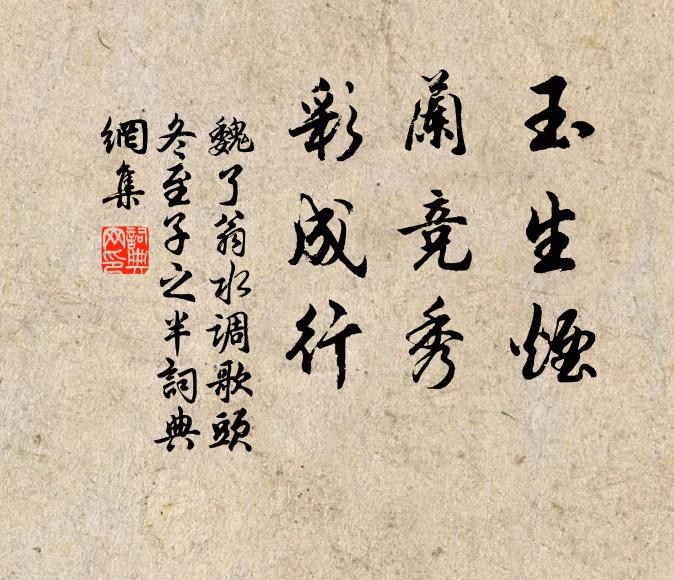 玉生煙
蘭競秀
彩成行
魏了翁水调歌頭
冬至子之半詞典
網集
詞典
网印